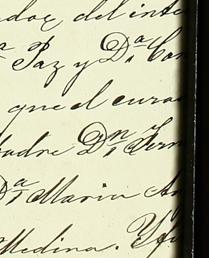 del inte
Paz y D.ª Con
que el cura
adre D.n Fern
D.ª Maria An
Medina. Y fu